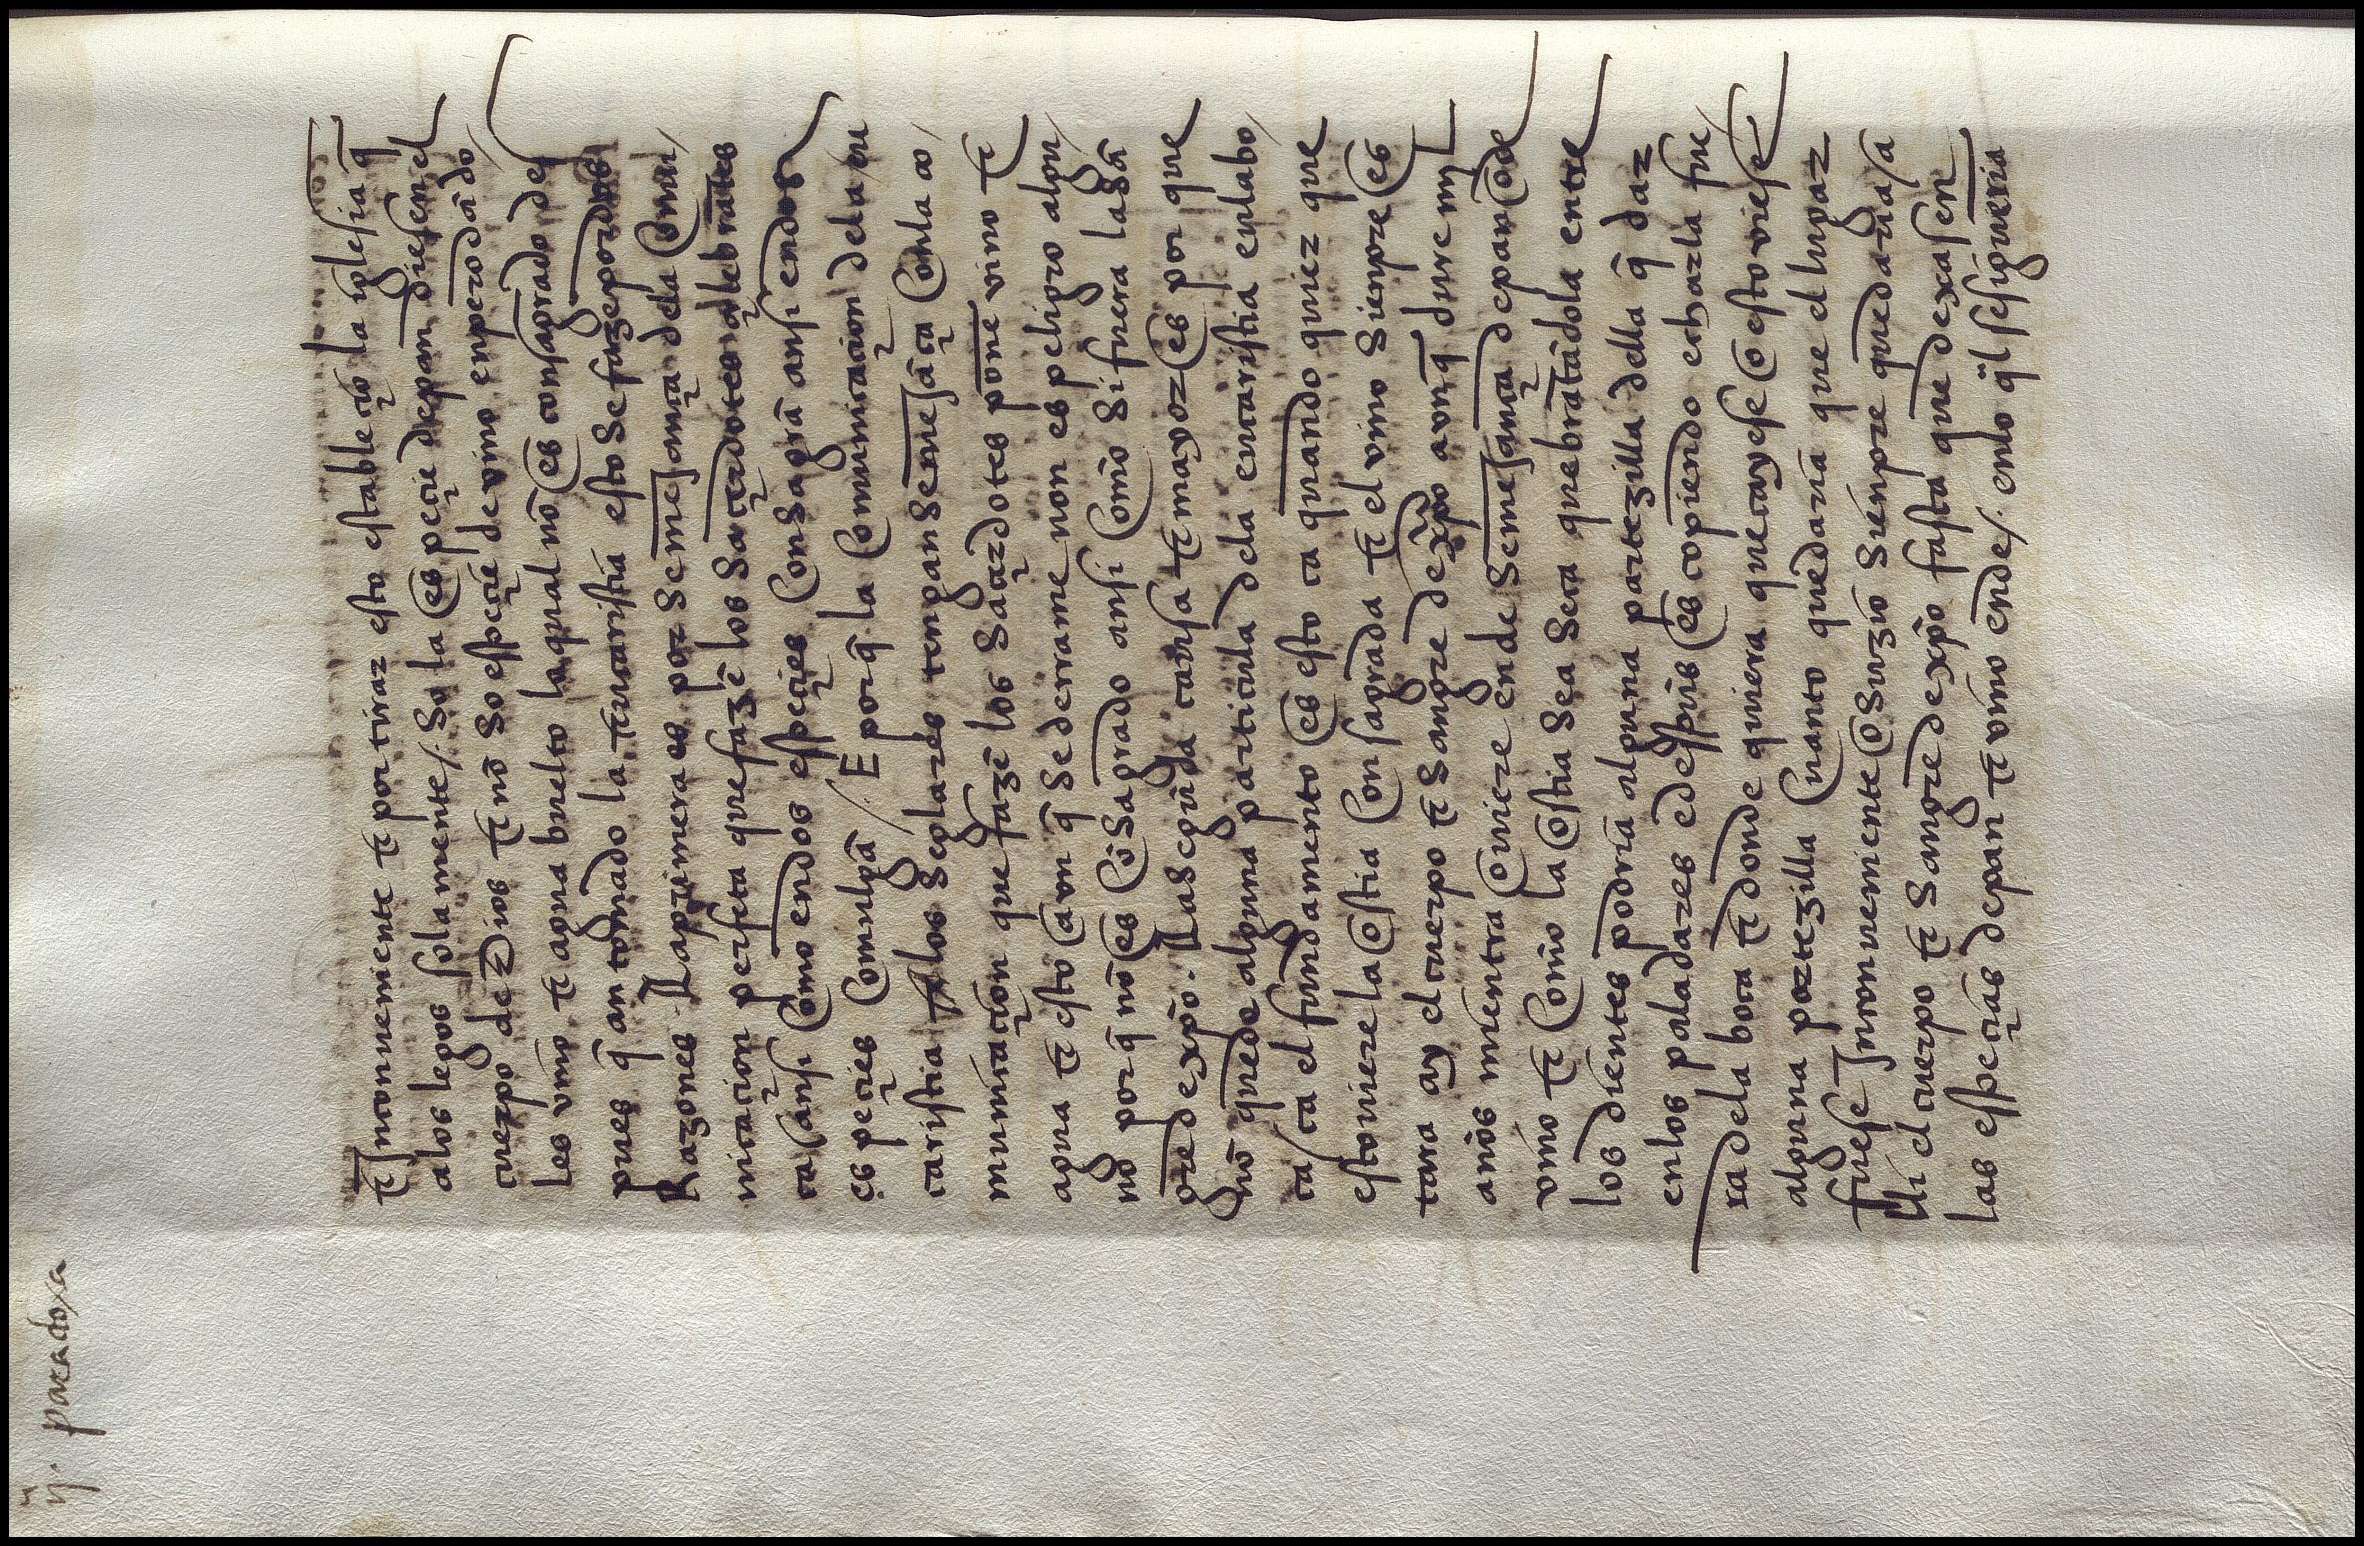 ij. paradoxa
τ Inconueniente τ por tirar esto establecio la iglesia q̄
alos legos sola mente /. So la es peçie de pan diesen el
cuerpo de Dios τ nō so espeçie de vino enpero dādo
les vino τ agua buelto la qual nō es consagrado des
pues q̄ an tomado la eucaristia esto se faze por dos
Razones. La primera es por se mejança dela comu
nicacion perfeta que fazē los saçerdotes çelebrātes
ca ansi como en dos espeçies consagrā ansi en dos
es peçies comulgā /. E por q̄ la comunicaçion dela eu
caristia a los seglares tengan semejāça con la co
municaçion que fazē los saçerdotes pone vino τ
agua τ esto aun q̄ se derrame non es peligro algu
no por q̄ nō es cōsagrado ansi como si fuera la sā
gre de xp̄o. La segūda causa τ mayor es por que
nō quede alguna particula dela eucaristia enla bo
ca / ca el fundamento es esto ca quando quier que
estouiere la ostia consagrada τ el vino sienpre es
tara ay el cuerpo τ sangre de xp̄o aunq̄ dure mill
años mientra ouiere ende semejança de pan o de
vino τ como la ostia sea seca quebrātādola entre
los dientes podria alguna partezilla della q̄ dar
en los paladares e despues escopiendo echarla fue
ra dela boca τ donde quiera que cayese o estouiese
alguna partezilla quanto quedaria que el lugar
fuese Inconueniente o suzio sienpre quedaria a
lli el cuerpo τ sangre de xp̄o fasta que dexasen
las espeçias de pan τ vino ende /. en lo q̄l se siguiria